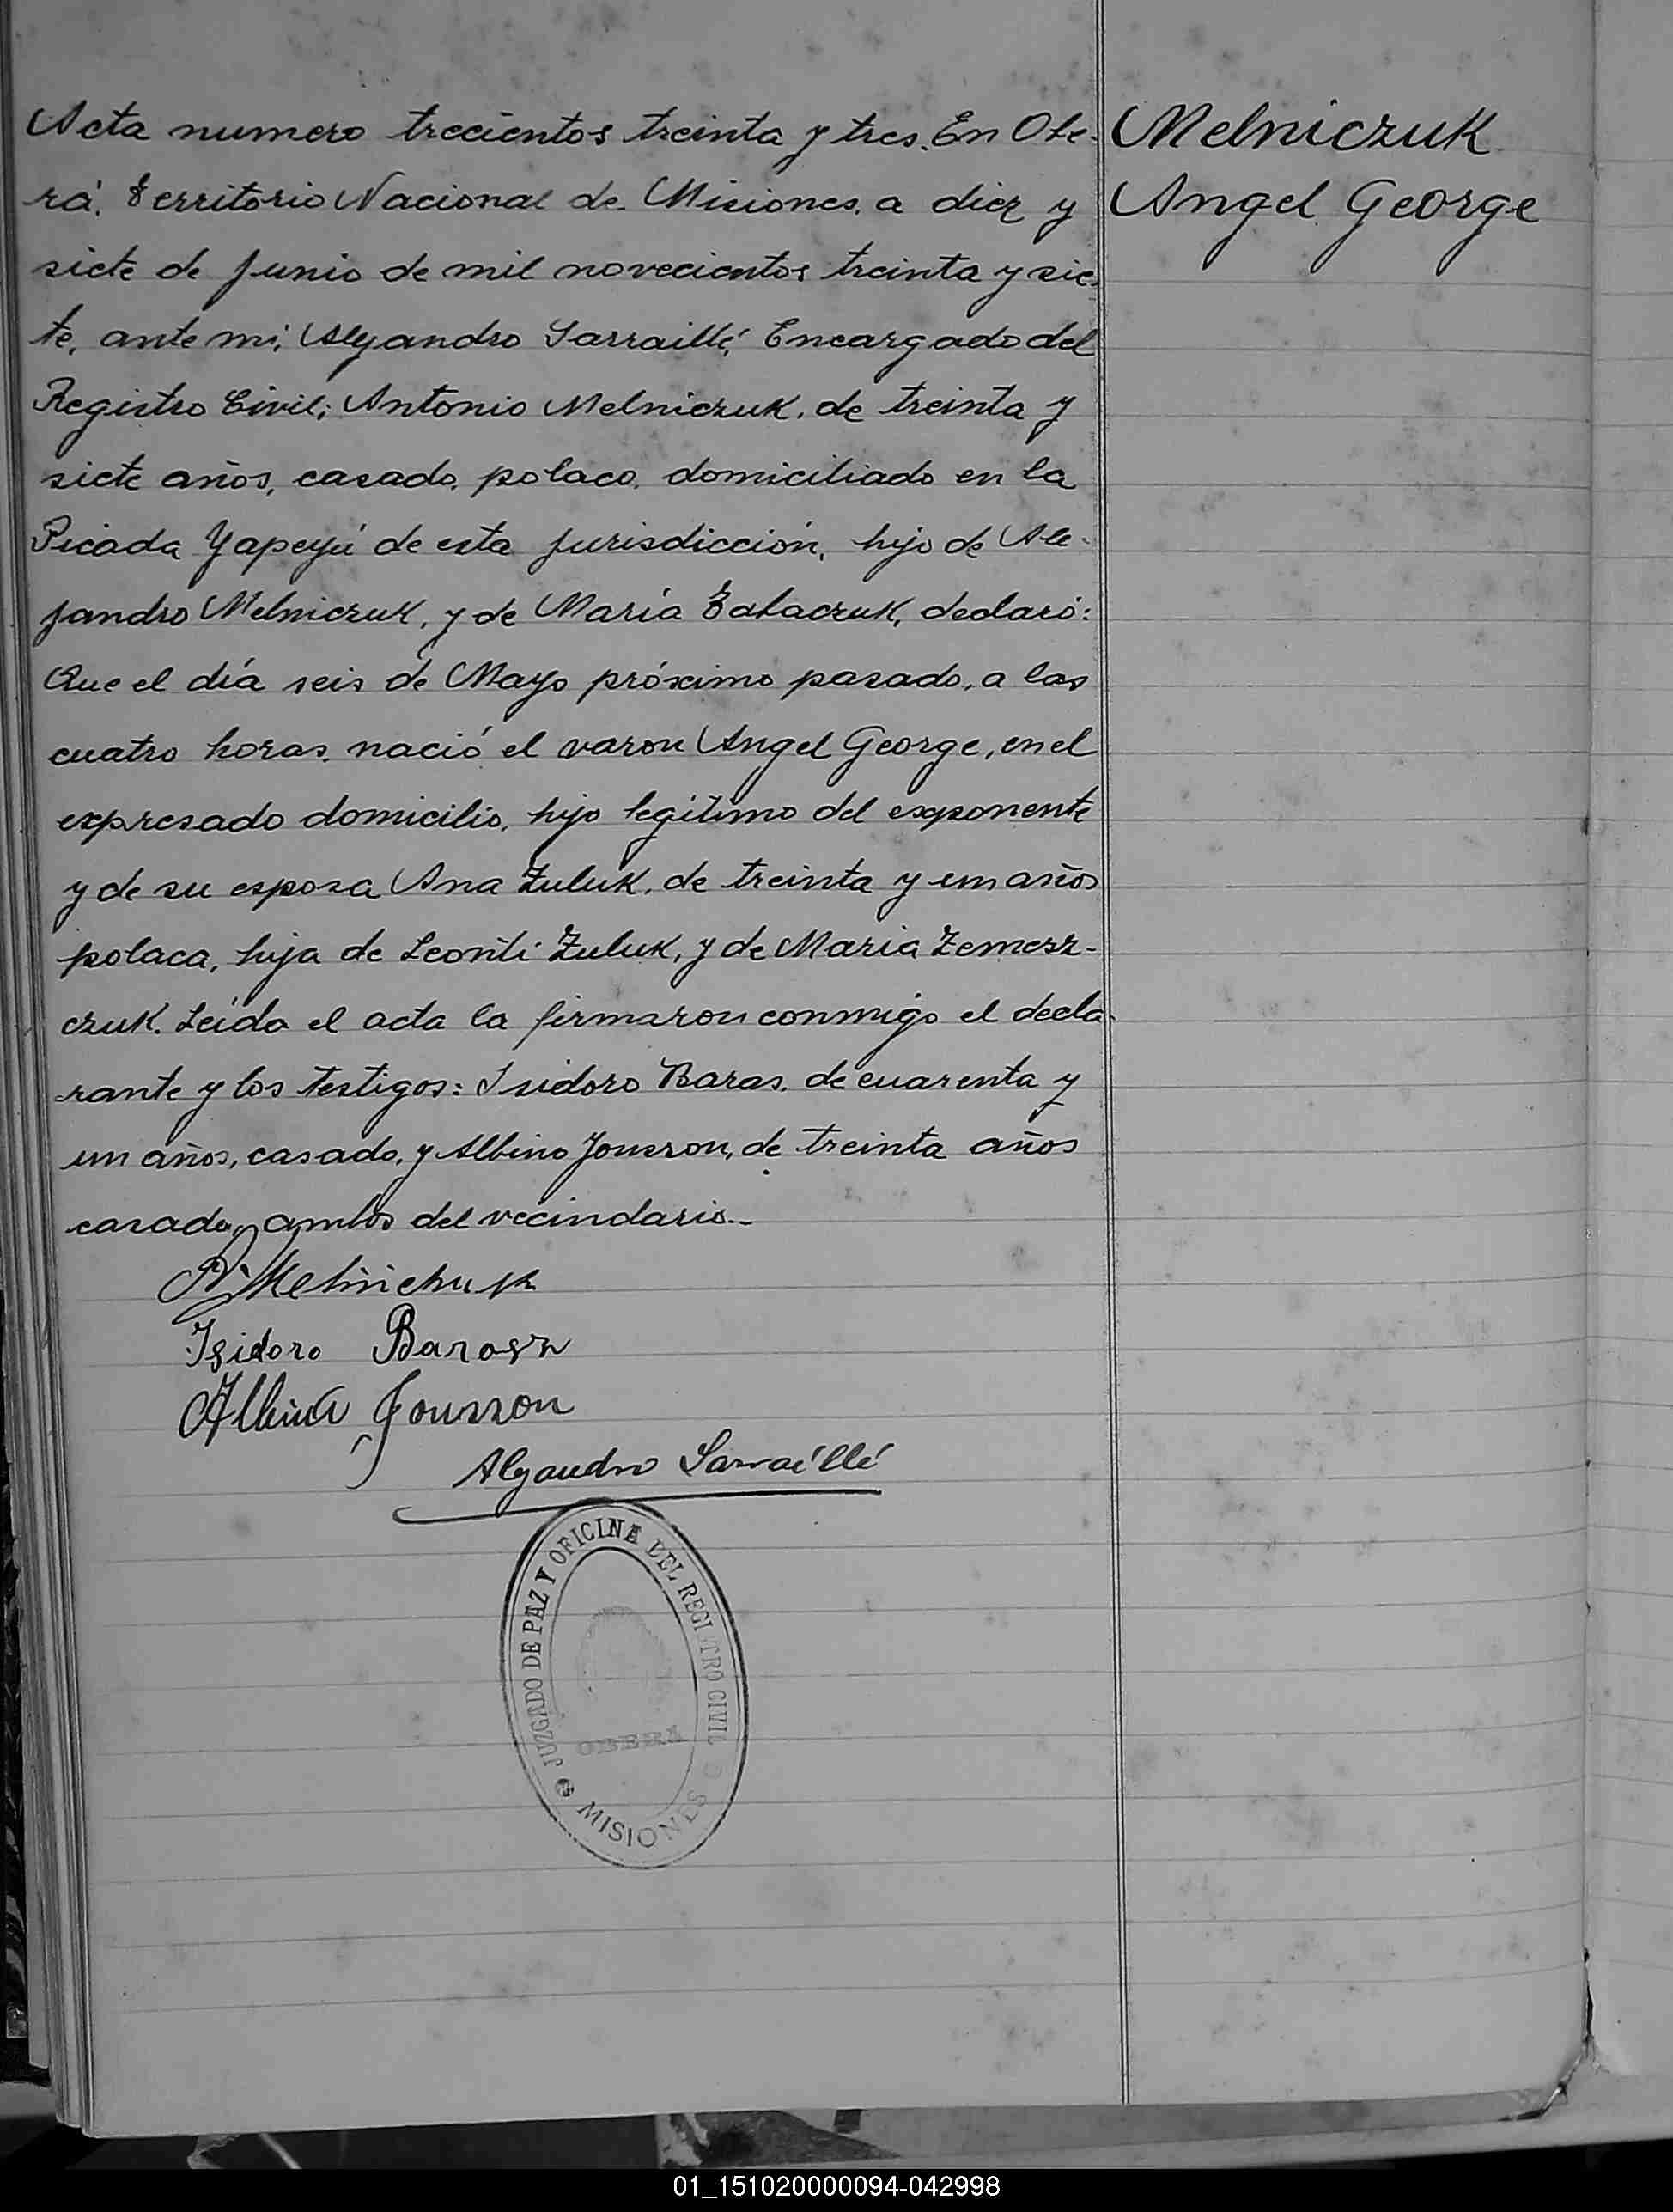 Acta numero trecientos treinta y tres. En Obe-
rá. Territorio Nacional de Misiones, a diez y
siete de Junio de mil novecientos treinta y sie
te, ante mi, Alejandro Sarraillé, Encargado del
Registro Civil; Antonio Melniczuk, de treinta y
siete años, casado, polaco, domiciliado en la
Picada Yapeyú de esta jurisdicción, hijo de Ale-
jandro Melniczuk, y de María Tabaczuk, declaró:
Que el día seis de Mayo próximo pasado, a las
cuatro horas, nació el varon Angel George, en el
expresado domicilio, hijo legítimo del exponente
y de su esposa Ana Zuluk, de treinta y un años
polaca, hija de Leonti Zuluk, y de Maria Zemesz-
czuk. Leída el acta la firmaron conmigo el decla-
rante y los testigos: Isidoro Baras, de cuarenta y
un años, casado, y Albino Jonsson, de treinta años
casado, ambos del vecindario.-
Melniczuk
Angel George
Melnichuk
Isidoro Barosz
Albino Jonsson
Alejandro Sarraillé
JUZGADO DE PAZ Y OFICINA DEL REGISTRO CIVIL
OBERA
MISIONES
01_151020000094-042998